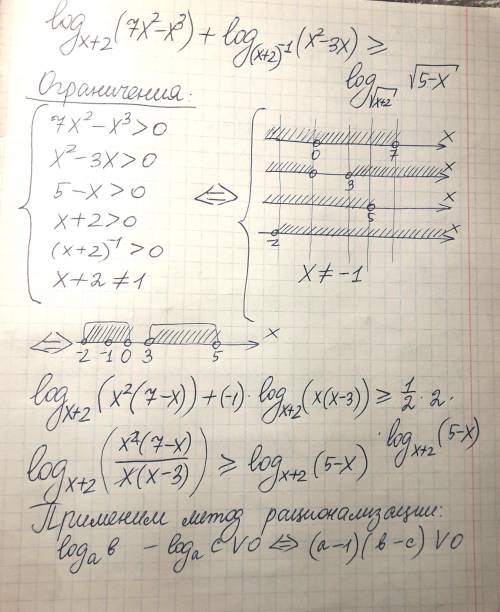 log_{x+2}(7x²-x³)+log_{(x+2)^{-1}}(x²-3x) ≥
log_{√x+2} √5-x
Ограничения:
7x²-x³>0
x²-3x>0
5-x>0
x+2>0
(x+2)^{-1}>0
x+2≠1
⇔
0 7 x
3 x
5 x
-2 x
x≠-1
⇔ -2 -1 0 3 5 x
log_{x+2}(x²(7-x))+(-1)·log_{x+2}(x(x-3)) ≥ 1/2·2·
·log_{x+2}(5-x)
log_{x+2}(x²(7-x)/x(x-3)) ≥ log_{x+2}(5-x)
Применим метод рационализации:
log_a b - log_a c V 0 ⇔ (a-1)(b-c) V 0